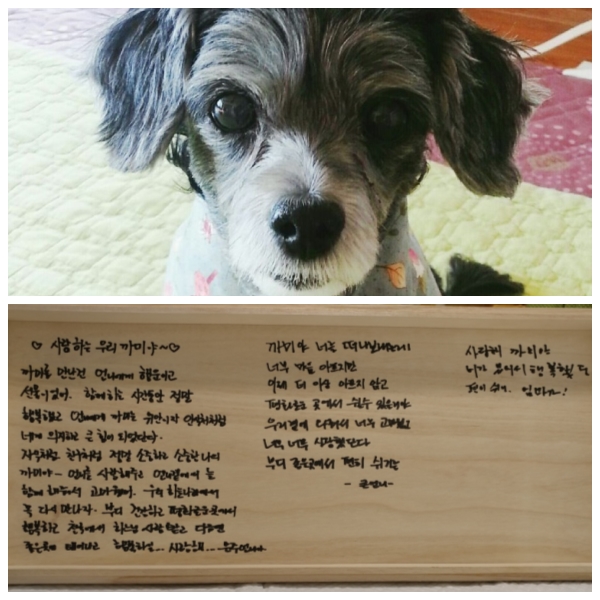 ♡ 사랑하는 우리 까미야~♡
까미를 만난건 언니에게 행운이고
선물이었어. 함께하는 시간동안 정말
행복했고 언니에게 까미는 유안이랑 안성처럼
너에 의지하고 큰 힘이 되었단다.
자식처럼 친구처럼 정말 소중하고 소중한 나의
까미야~ 언니를 사랑해주고 언니곁에서 늘
함께 해줘서 고마웠어. 우리 하늘나라에서
꼭 다시 만나자. 부디 건강하고 평화로운곳에서
행복하고 천국에서 하느님 사랑 받고 다음엔
좋은곳에 태어나고 행복하길... 사랑해...
까미야 너를 떠나보내는게
너무 마음 아프지만
이제 더 이상 아프지 않고
평화로운 곳에서 쉴수 있을거야
우리곁에 다녀가 너무 고마웠고
너를 너무 사랑했단다
부디 좋은곳에서 편히 쉬기를
- 큰언니 -
사랑해 까미야
니가 우리의 행복했단
편히 쉬어. 엄마가!